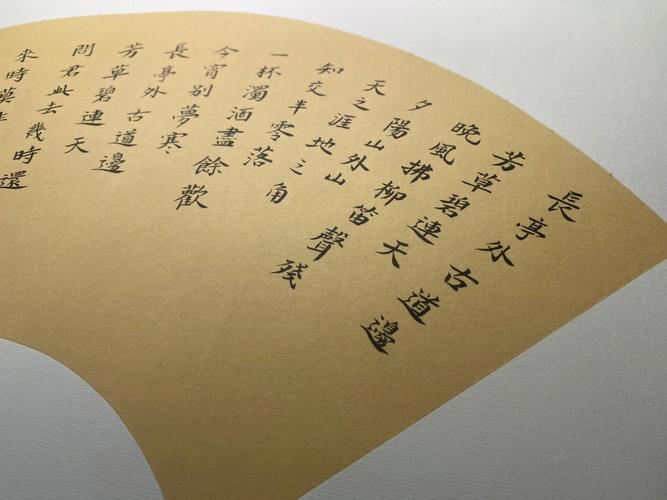 長亭外古道邊
芳草碧連天
晚風拂柳笛聲殘
夕陽山外山
天之涯地之角
知交半零落
一杯濁酒盡餘歡
今宵別夢寒
長亭外古道邊
芳草碧連天
問君此去幾時還
來時莫